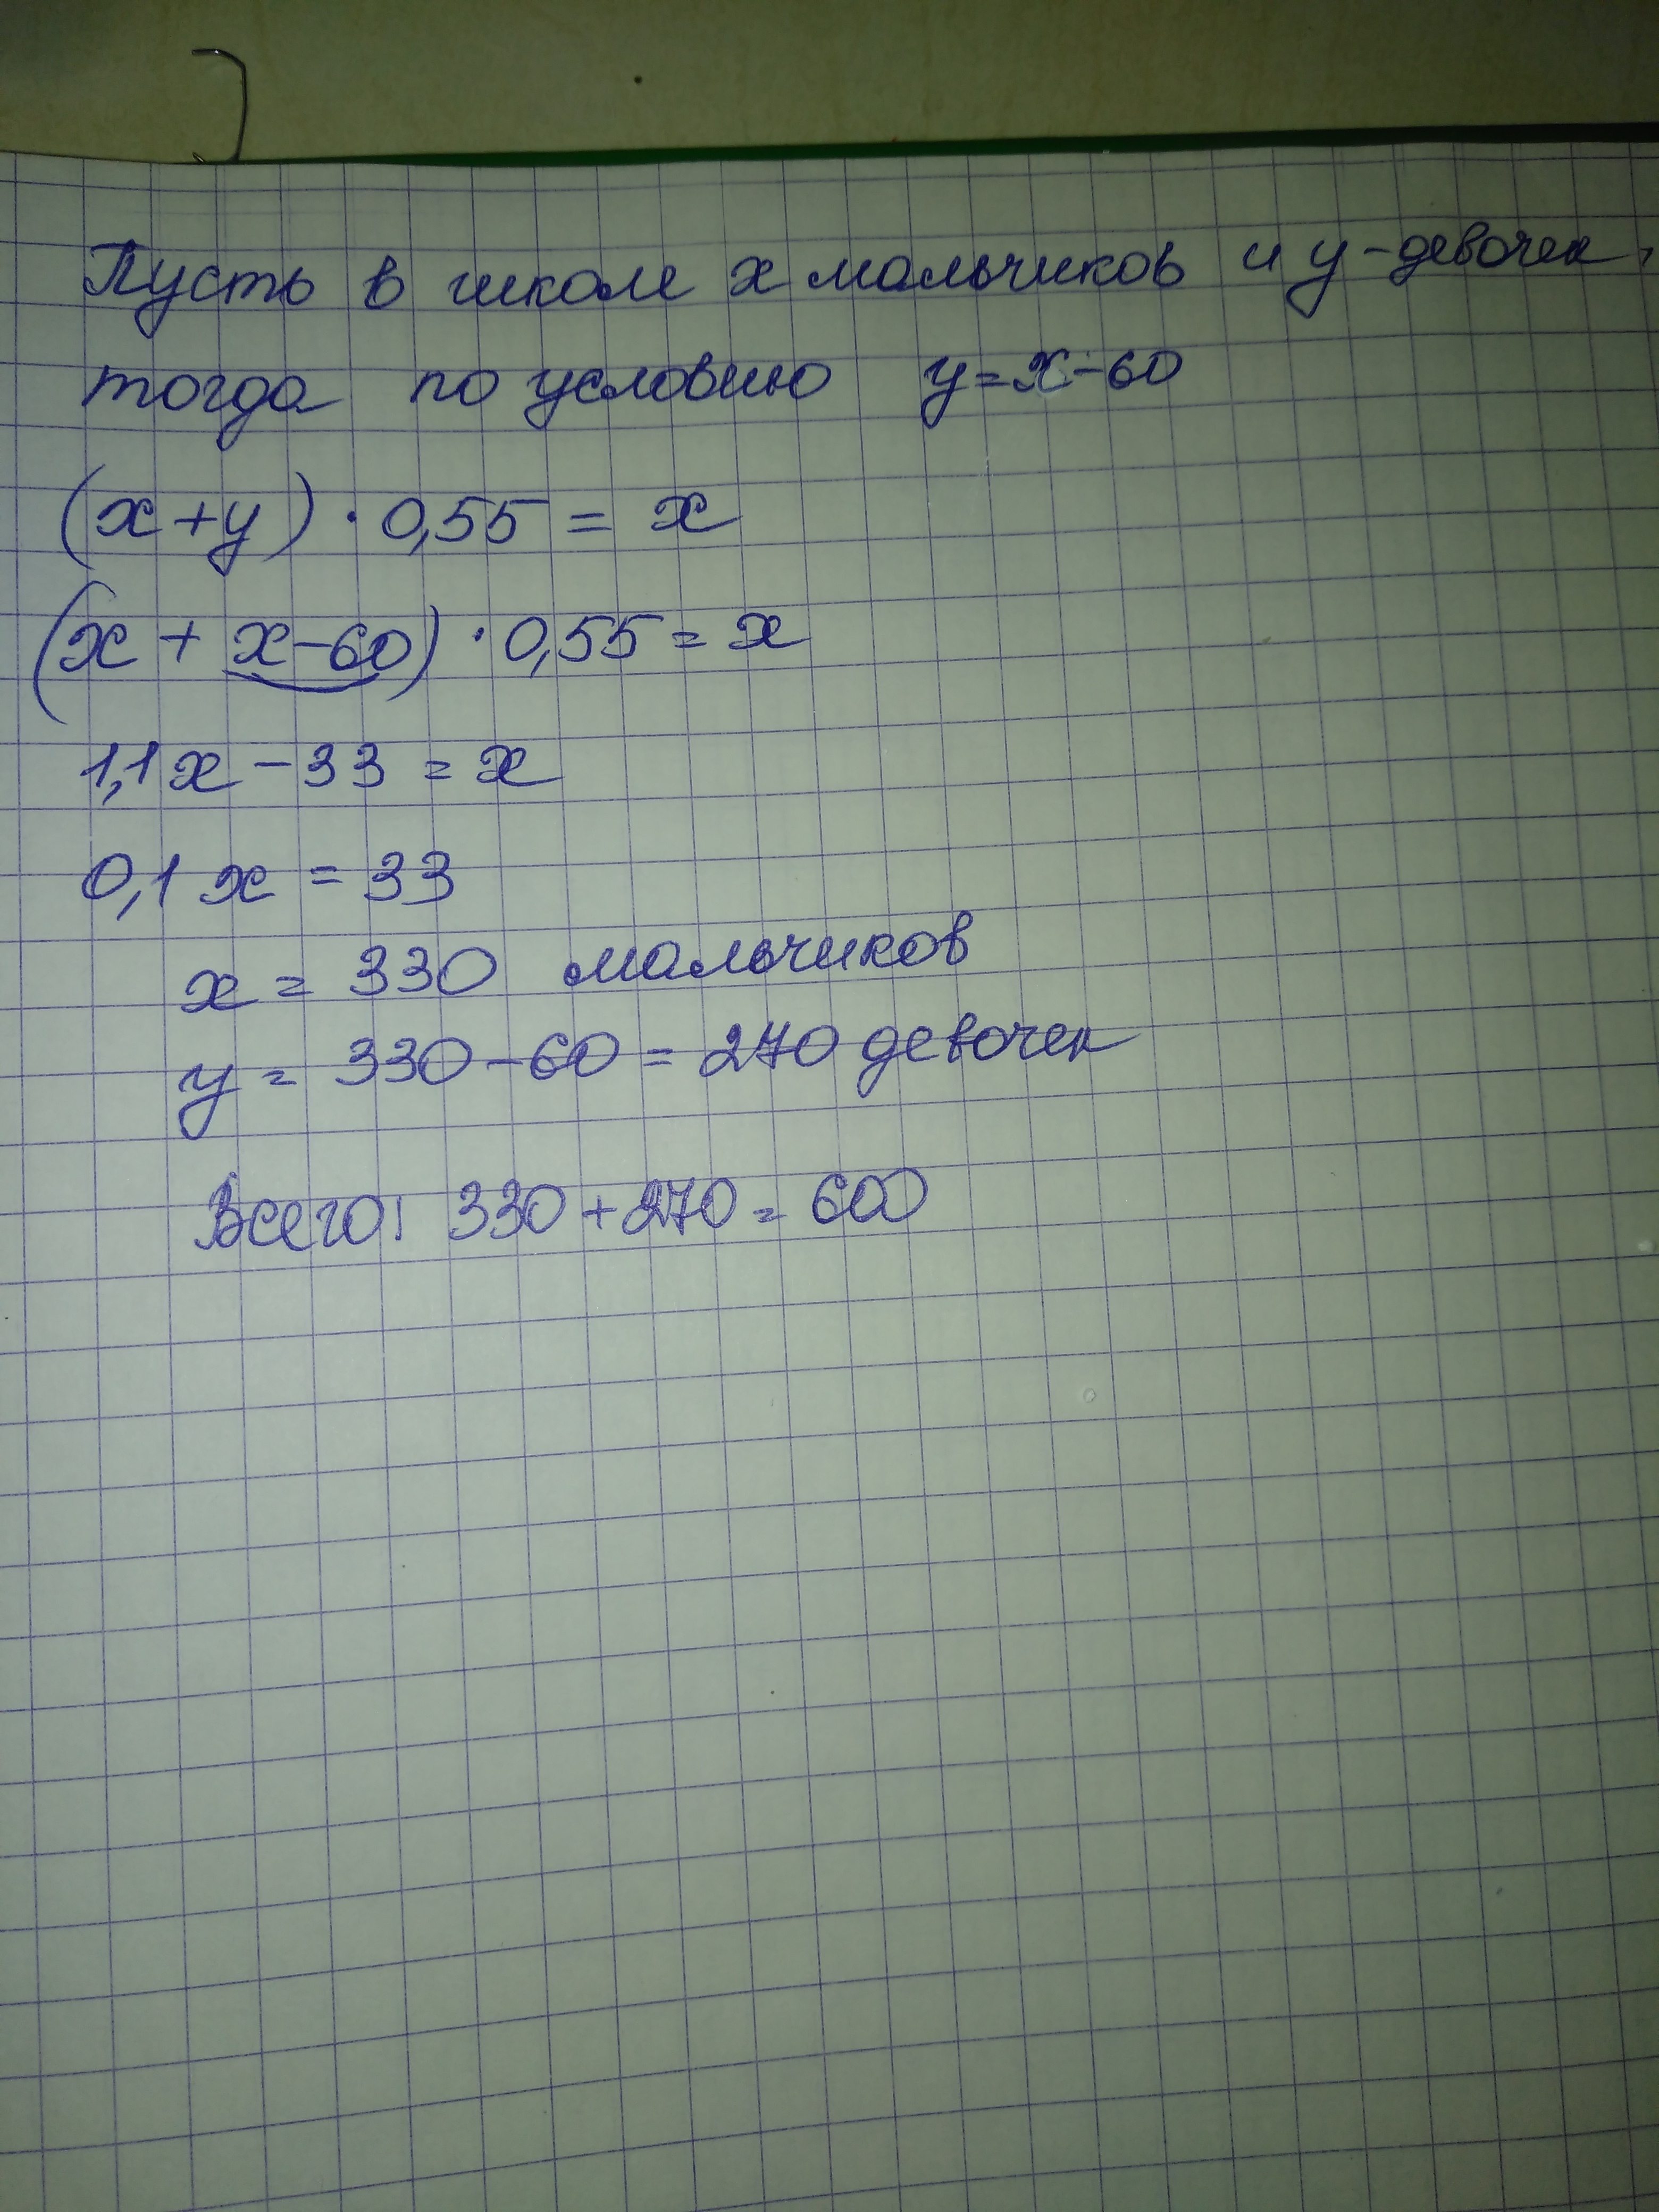 Пусть в школе x мальчиков и y-девочек,
тогда по условию y=x-60
(x+y)·0,55 = x
(x + x-60)·0,55 = x
1,1x-33 = x
0,1x = 33
x = 330 мальчиков
y = 330-60 = 270 девочек
Всего: 330+270 = 600